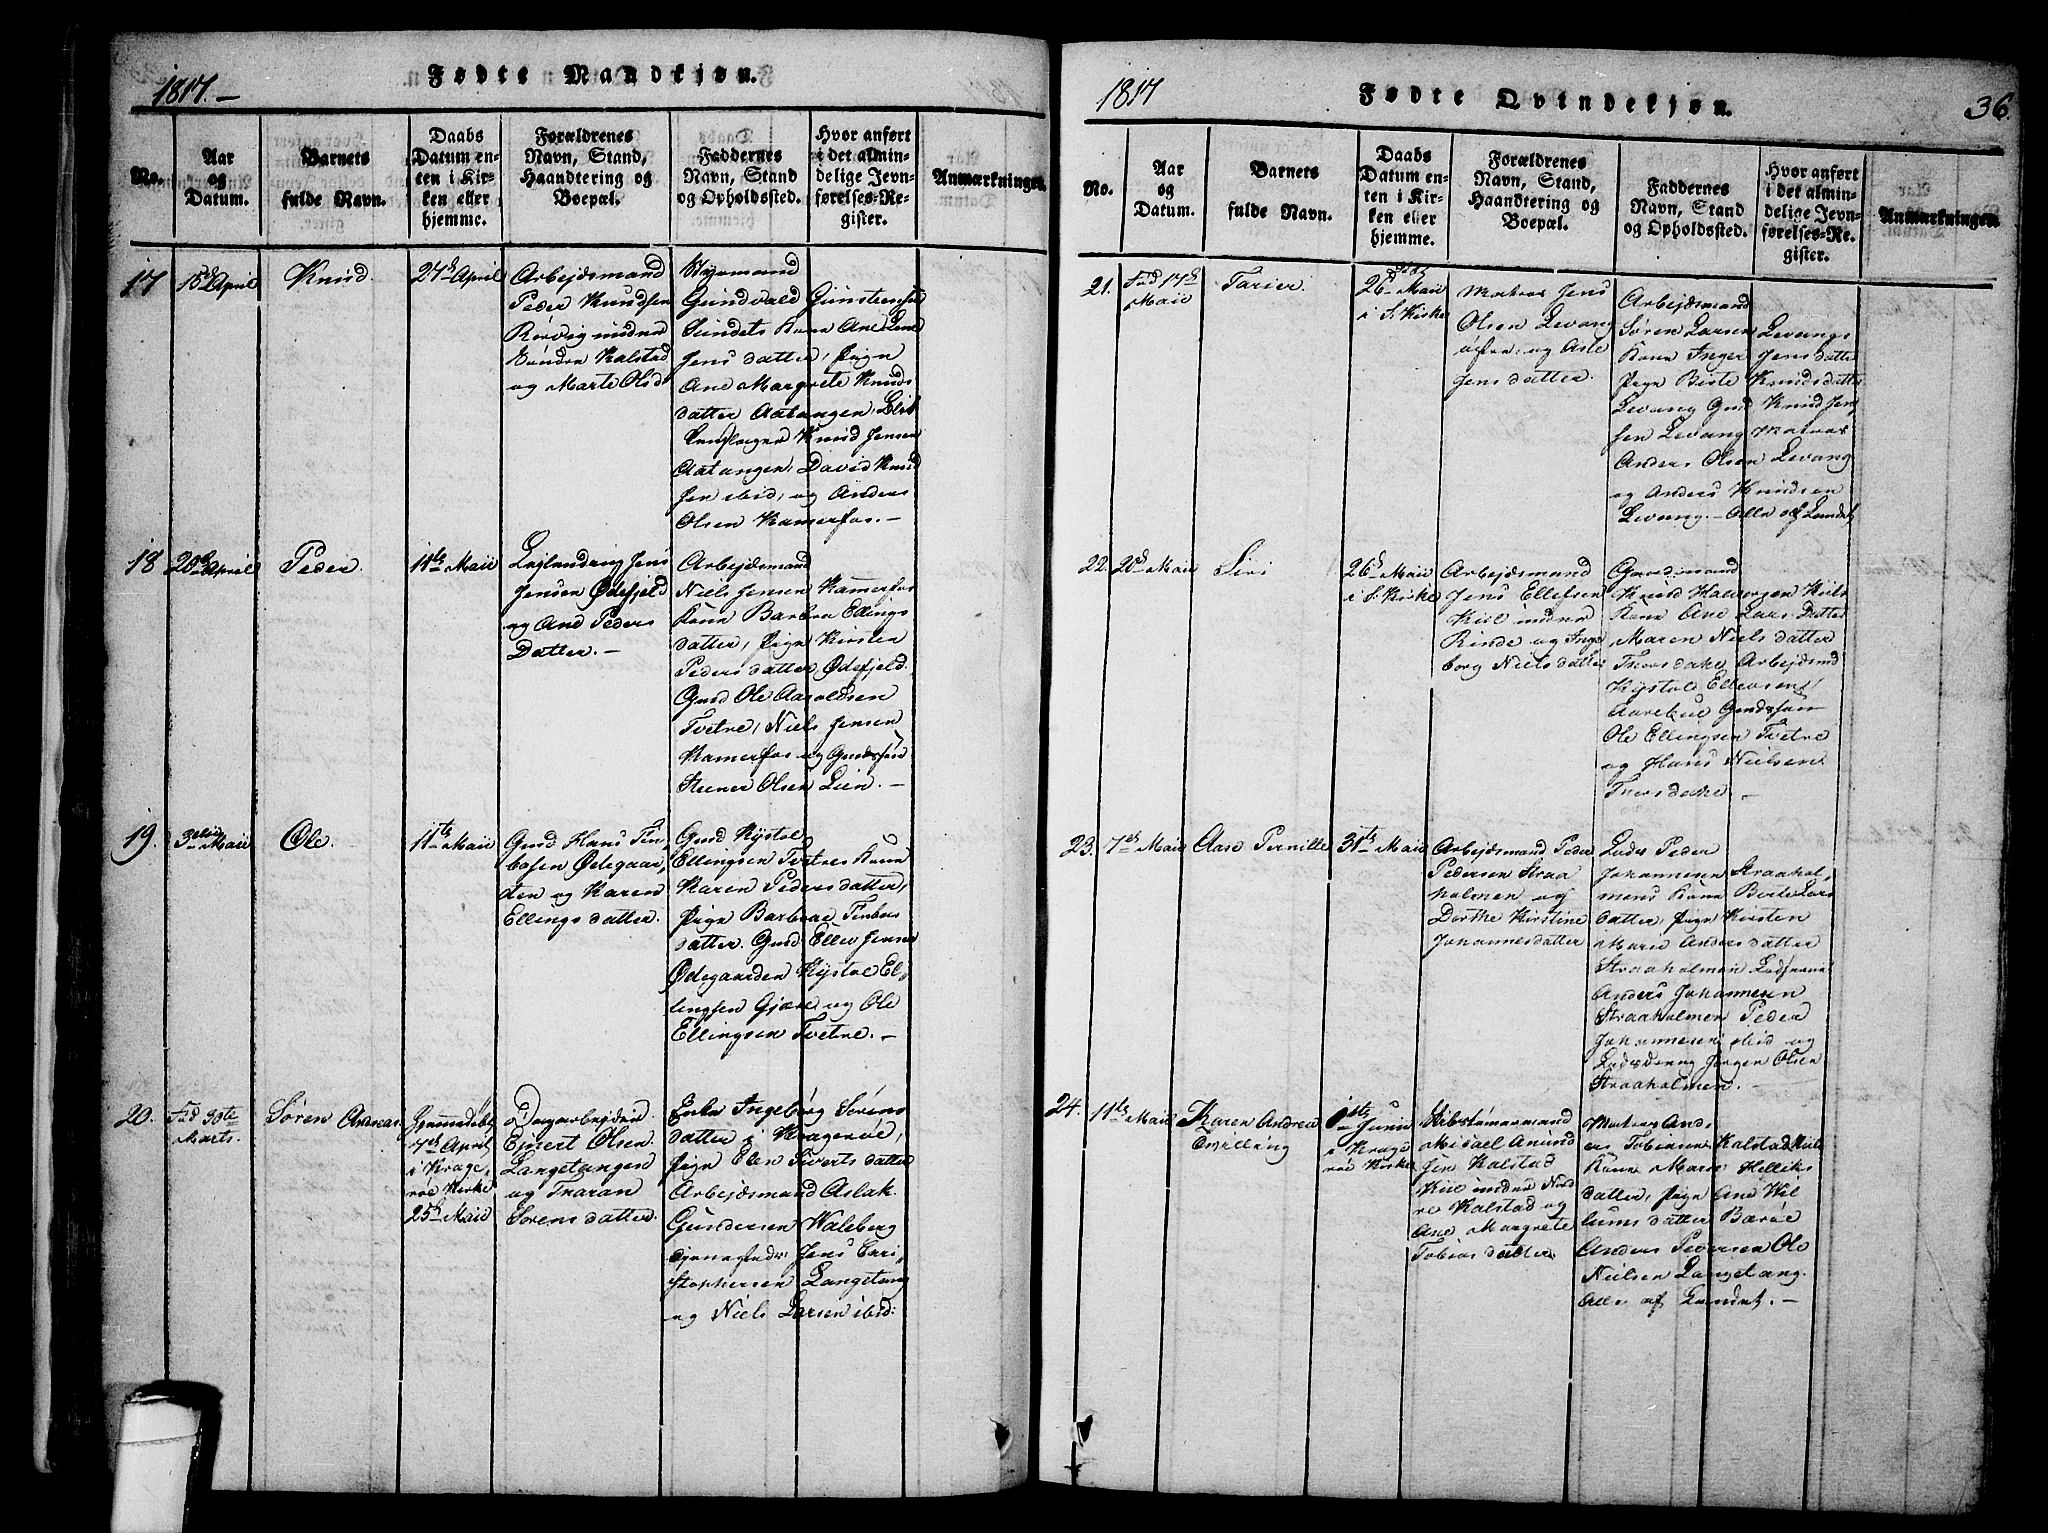 1817.
Fødte Mandkiøn.
No.
Aar
og
Datum.
Barnets
fulde Navn.
Daabs
Datum en-
ten i Kir-
ken eller
hjemme.
Forældrenes
Navn, Stand,
Haandtering og
Boepæl.
Faddernes
Navn, Stand
og Opholdssted.
Hvor anført
i det almin-
delige Jevn-
førelses-Re-
gister.
Anmærkninger.
17
15d April
Knud
27d April
Arbejdsmand
Peder Knudsen
Rørvig under
Søndre Kalstad
og Marte Olsd
Styrmand
Gundvald Gunstensen
Sundets Kone Ane Lene
Jens datter, Pigen
Ane Margrete Knuds
datter Aatangen
Knud Jensen
Aatangen, David Knud
sen ibid, og Anders
Olsen Kamerfos.
18
20de April
Peder.
11te Maii
Jens
Jensen Ødefjeld
og Ane Peders
Datter.
Arbejdsmand
Niels Jensen Kamerfos
Kone Barbra Ellings
datter, Pigen Kirsten
Peders datter Ødefjeld.
Gmd Ole Aaroldsen
Tvetne, Niels Jensen
Kamerfos og
Steener Olsen Lien.
19.
3die Maii
Ole.
11te Maii
Gmd Hans Tin-
bosen Ødegaar-
den og Karen
Ellings datter.
Gmd Kystol
Ellingsen Tvetnes Kone
Karen Peders datter,
Pigen Barbroe Tinbos
datter. Gmd Ellev Jensen
Ødegaarden Kystol El-
lingsen Gjære og Ole
Ellingsen Tvetne.
20.
Fød 30te
Marts.
Søren Andreas.
Hjemmedøbt
7de April
i Krage-
røe Kirke
25d Maii
Dagarbejder
Eyvert Olsen
Langetangen
og Tharan
Sørens datter.
Enke Ingeborg Sørens
datter i Kragerøe,
Pigen Elen Siverts datter
Arbejdsmand Aslak
Gundersen Walberg
Jens Cri-
stophersen Langetang
og Niels Larsen ibid:
1817
Fødte Qvindekjøn.
36
No.
Aar
og
Datum.
Barnets
fulde Navn.
Daabs
Datum en-
ten i Kir-
ken eller
hjemme.
Forældrenes
Navn, Stand,
Haandtering og
Boepæl.
Faddernes
Navn, Stand
og Opholdssted.
Hvor anført
i det almin-
delige Jevn-
førelses-Re-
gister.
Anmærkninger.
21.
Fød 17d
Maii
Tarier.
26d Maii
i S. Kirke
Matros Jens
Olsen Levang
og Asle
Jens datter.
Arbejdsmand
Søren Larsen Levangs
Kone Inger Jens datter
Pigen Birte Knudsdatter
Levang Gmd Knud Jen
sen Levang Matros
Anders Olsen Levang
og Anders Knudsen
Levang. Alle af Landet,
22.
20d Maii
Siri
26d Maii
i S. Kirke
Arbejdsmand
Jens Ellefsen
Kiil under
Rinde og Inge
borg Niels datter
Gaardmand
Knud Halvorsen Kiils
Kone Ane Lars Datter
Maren Niels datter
Thorsdahe, Arbejdsmd
Kystol Ellevsen
Aarebue Gmdssøn
Ole Ellingsen Tvetne
og Hans Nielsen
Thorsdahe.
23.
7de Maii
Aase Pernille
31te Maii
Arbejdsmand Peder
Pedersen Straa
holmen og
Dorthe Kirstine
Johannesdatter
Lods Peder
Johannesen Straahol-
mens Kone Berte Lars
datter, Pigen Kirsten
Marie Anders datter
Straaholmen
Anders Johannesen
Straaholmen Peder
Johannesen ibid og
Lodsdreng Jørgen Olsen
Straaholmen.
24.
11te Maii
Karen Andrea
Tvilling
1ste Junii
i Krage
røe Kirke
Skibstømmermand
Misael Amund
sen Kalstad
Kiil under Nord
re Kalstad og
Ane Margrete
Tobias datter
Matros And
ers Tobiasen Kalstad Kiils
Kone Maren Helliks
datter, Pigen Ane Wil
lums datter Bærøe
Anders Pedersen Ole
Nielsen Langetang.
Alle af Landet.